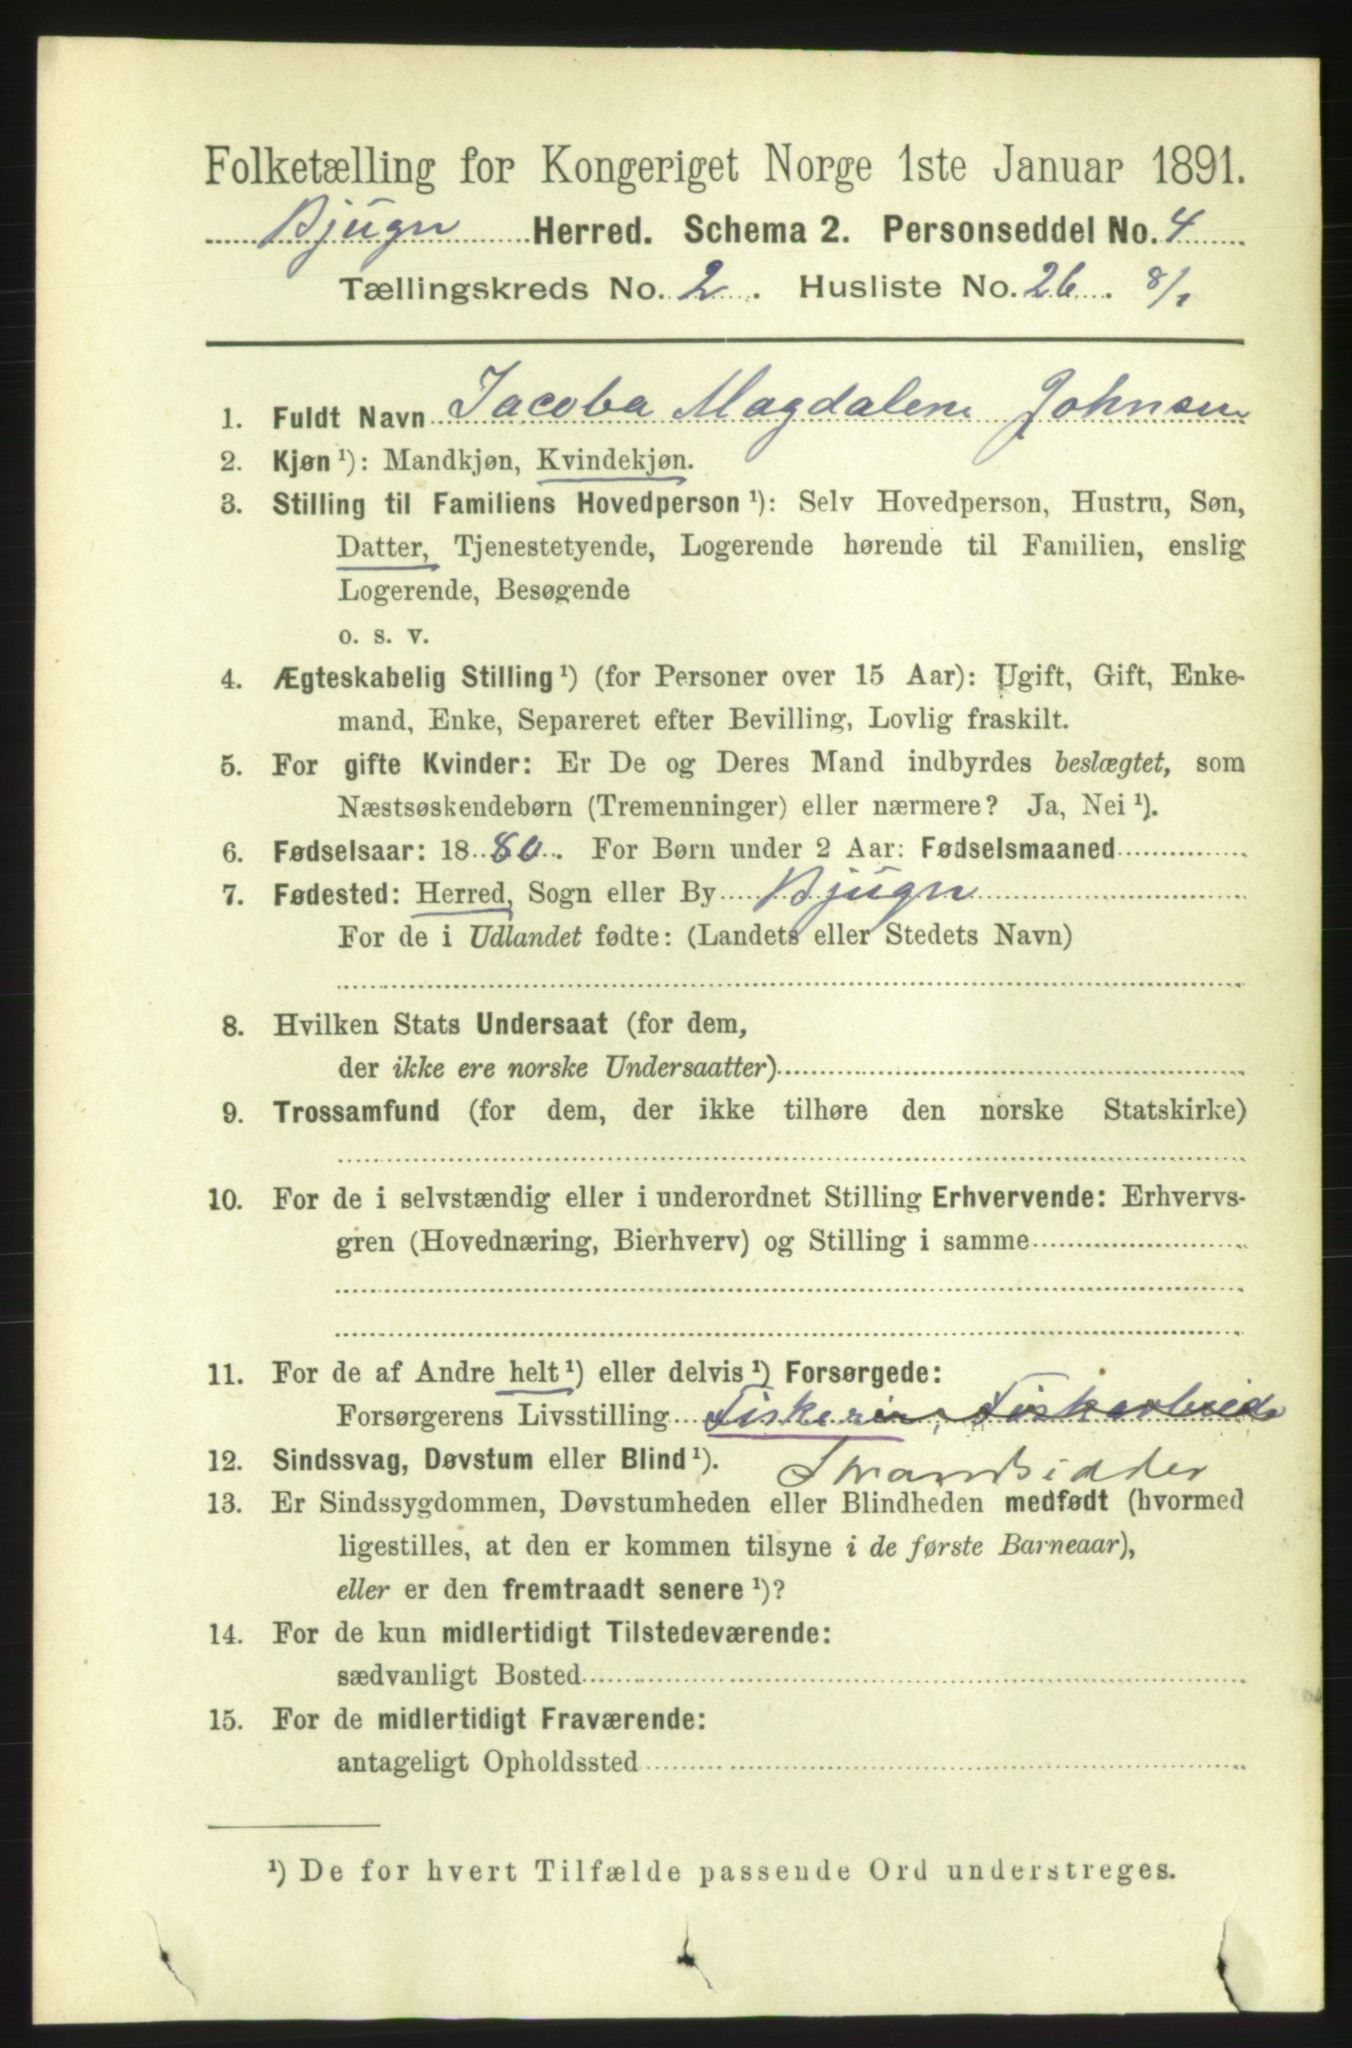 Folketælling for Kongeriget Norge 1ste Januar 1891.
Bjugn Herred. Schema 2. Personseddel No. 4
Tællingskreds No. 2. Husliste No. 26. 8/1
1. Fuldt Navn Jacoba Magdalene Johnsen
2. Kjøn ¹): Mandkjøn, Kvindekjøn.
3. Stilling til Familiens Hovedperson ¹): Selv Hovedperson, Hustru, Søn,
Datter, Tjenestetyende, Logerende hørende til Familien, enslig
Logerende, Besøgende
o. s. v.
4. Ægteskabelig Stilling ¹) (for Personer over 15 Aar): Ugift, Gift, Enke-
mand, Enke, Separeret efter Bevilling, Lovlig fraskilt.
5. For gifte Kvinder: Er De og Deres Mand indbyrdes beslægtet, som
Næstsøskendebørn (Tremenninger) eller nærmere? Ja, Nei ¹).
6. Fødselsaar: 1880. For Børn under 2 Aar: Fødselsmaaned
7. Fødested: Herred, Sogn eller By Bjugn
For de i Udlandet fødte: (Landets eller Stedets Navn)
8. Hvilken Stats Undersaat (for dem,
der ikke ere norske Undersaatter)
9. Trossamfund (for dem, der ikke tilhøre den norske Statskirke)
10. For de i selvstændig eller i underordnet Stilling Erhvervende: Erhvervs-
gren (Hovednæring, Bierhverv) og Stilling i samme
11. For de af Andre helt ¹) eller delvis ¹) Forsørgede:
Forsørgerens Livsstilling Fisker, Fiskarbeide
12. Sindssvag, Døvstum eller Blind ¹). Strandsidder
13. Er Sindssygdommen, Døvstumheden eller Blindheden medfødt (hvormed
ligestilles, at den er kommen tilsyne i de første Barneaar),
eller er den fremtraadt senere ¹)?
14. For de kun midlertidigt Tilstedeværende:
sædvanligt Bosted
15. For de midlertidigt Fraværende:
antageligt Opholdssted
¹) De for hvert Tilfælde passende Ord understreges.